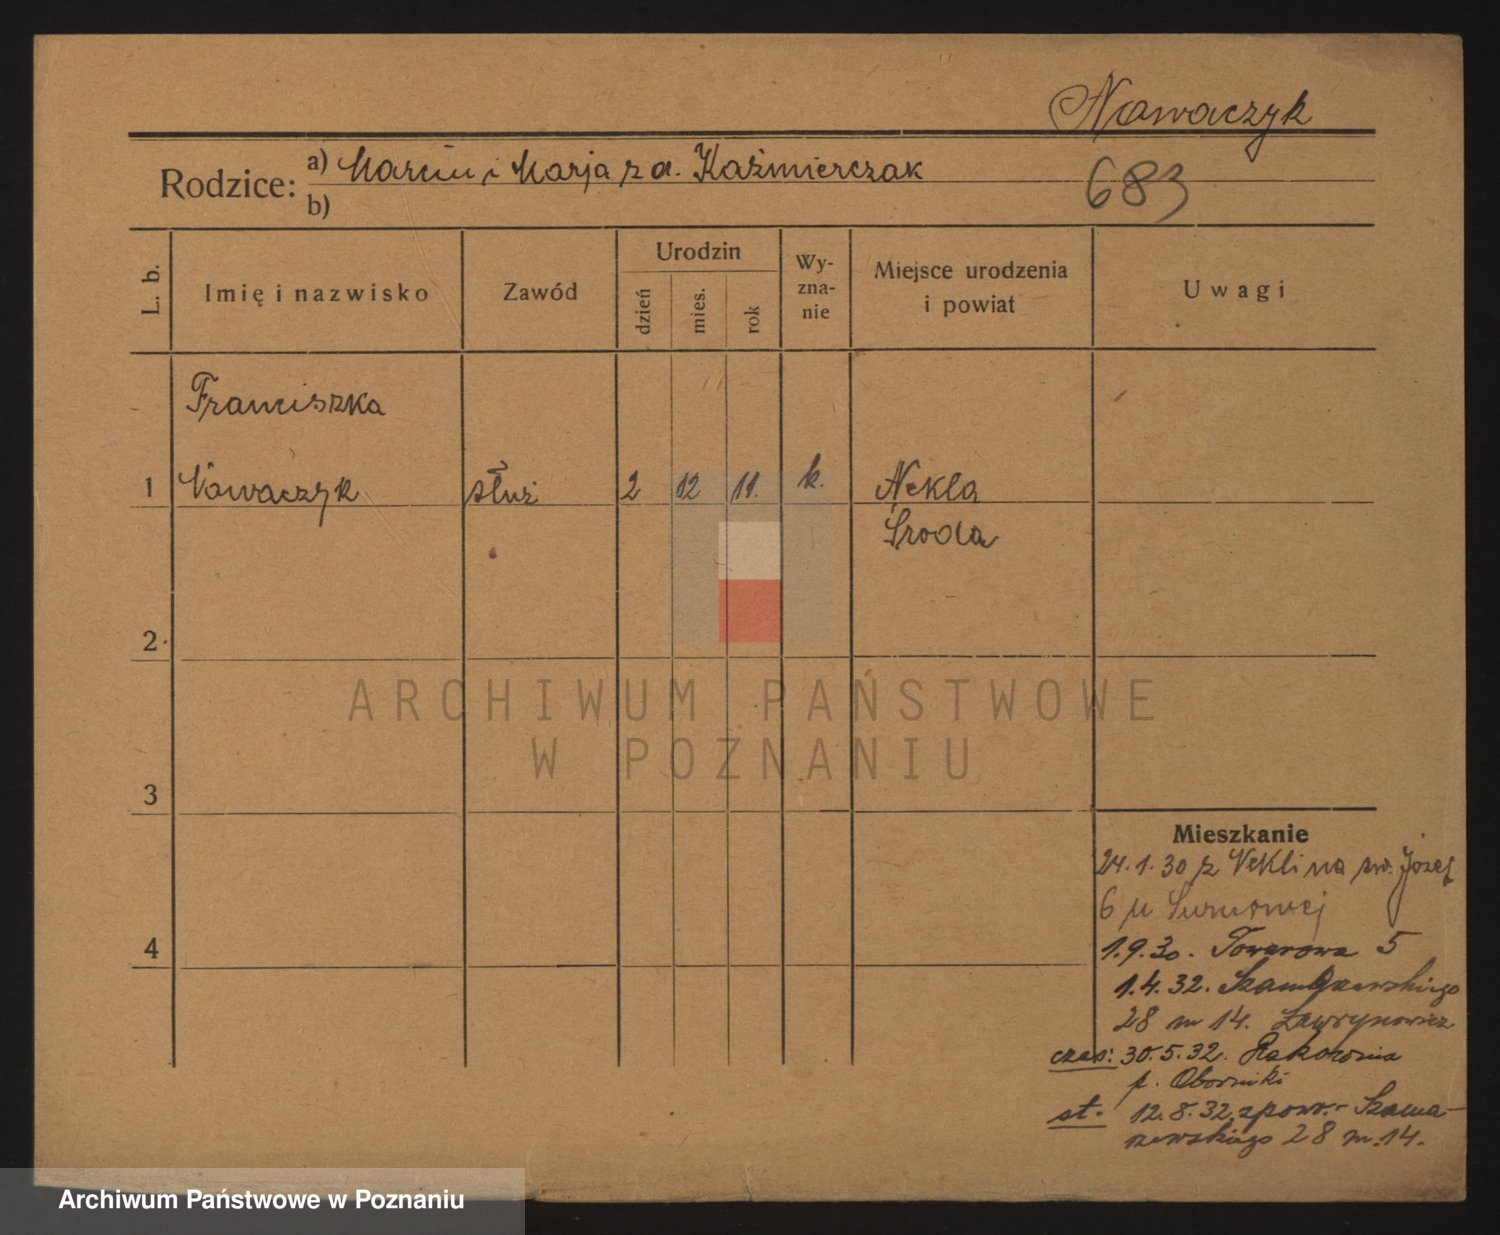 Nowaczyk
Rodzice: a) Marcin i Marja z d. Kaźmierczak
b)
683
L. b.
Imię i nazwisko
Zawód
Urodzin
dzień
mies.
rok
Wy-
zna-
nie
Miejsce urodzenia
i powiat
Uwagi
Franciszka
1 Nowaczyk służ 2 12 11. k. Nekla
Środa
2
3
4
ARCHIWUM PAŃSTWOWE
W POZNANIU
Mieszkanie
24.1.30 z Nekli na św. Józef
6 u
1.9.30. Towarowa 5
1.4.32. Szamarzewskiego
28 m 14. Ławrynowicz
czas: 30.5.32. Rakownia
p. Oborniki
st. 12.8.32. z pow. - Szama-
rzewskiego 28 m. 14.
Archiwum Państwowe w Poznaniu